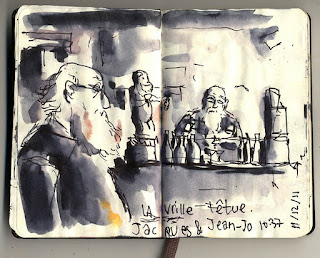 LA vrille têtue.
Jacques & Jean-Jo 10:37
11/12/11